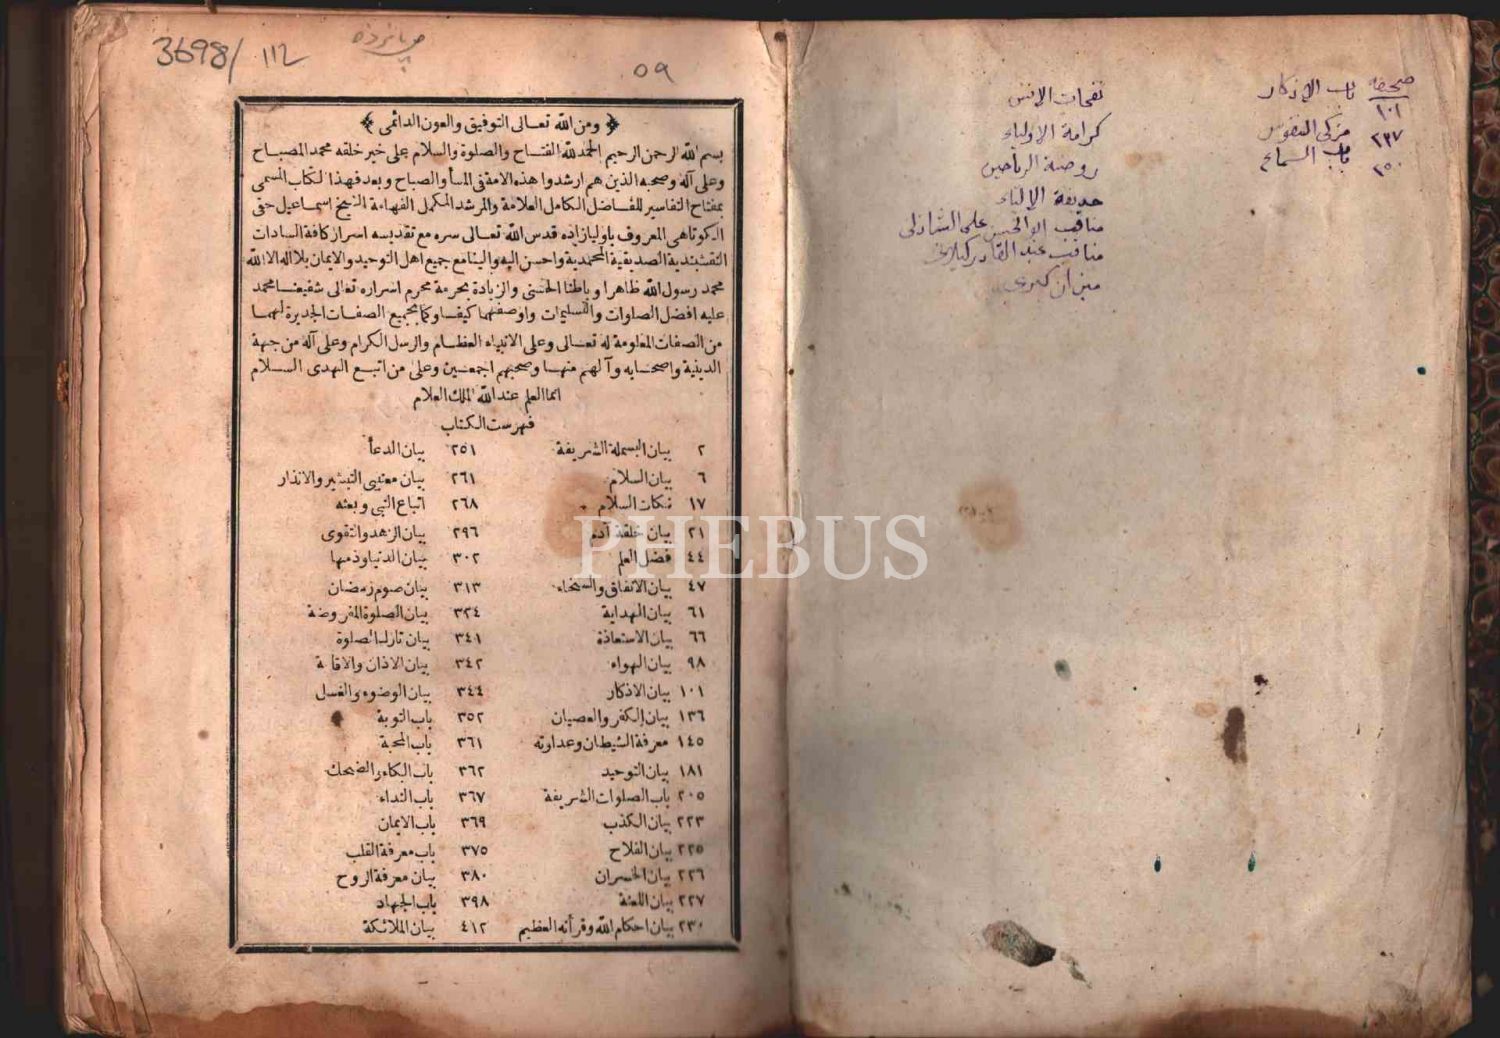 صحيفه باب الاذكار
١٠١
٢٣٧ مزكى النفوس
٢٥٠ باب السماع
نفحات الانس
كرامة الاولياء
روضة الرياحين
حديقة الاولياء
مناقب ابو الحسن على الشاذلى
مناقب عبد القادر كيلانى
ميزان كبرى
3698/ ١١٢
٥٩
ومن الله تعالى التوفيق والعون الدائمى
بسم الله الرحمن الرحيم الحمد لله الفتاح والصلوة والسلام على خير خلقه محمد المصباح
وعلى آله وصحبه الذين هم ارشدوا هذه الامة فى المسأ والصباح وبعد فهذا الكتاب المسمى
بمفتاح التفاسير للفاضل الكامل العلامة والمرشد المكمل الفهامة الشيخ اسماعيل حقى
الكوتاهى المعروف باوليازاده قدس الله تعالى سره مع تقديسه اسرار كافة السادات
النقشبندية الصديقية المحمدية واحسن اليه والينا مع جميع اهل التوحيد والايمان بلا اله الا الله
محمد رسول الله ظاهرا وباطنا الحسنى والزيادة بحرمة محرم اسراره تعالى شفيعنا محمد
عليه افضل الصلوات والتسليمات واوصفتهما كيفا وكما بجميع الصفات الجديرة لهما
من الصفات المعلومة له تعالى وعلى الانبياء العظام والرسل الكرام وعلى آله من جهة
الدينية واصحابه وآلهم منها وصحبهم اجمعين وعلى من اتبع الهدى السلام
انما العلم عند الله الملك العلام
فهرست الكتاب
٢ بيان البسملة الشريفة ٢٥١ بيان الدعأ
٦ بيان السلام ٢٦١ بيان معنيى التبشير والانذار
١٧ نكات السلام ٢٦٨ اتباع النبى وبعثه
٢١ بيان خلقة آدم ٢٩٦ بيان الزهد والتقوى
٤٤ فضل العلم ٣٠٢ بيان الدنيا وذمها
٤٧ بيان الانفاق والسخاء ٣١٣ بيان صوم رمضان
٦١ بيان الهداية ٣٢٤ بيان الصلوة المفروضة
٦٦ بيان الاستعاذة ٣٤١ بيان تارك الصلوة
٩٨ بيان الهواء ٣٤٢ بيان الاذان والاقامة
١٠١ بيان الاذكار ٣٤٤ بيان الوضوء والغسل
١٣٦ بيان الكفر والعصيان ٣٥٢ باب التوبة
١٤٥ معرفة الشيطان وعداوته ٣٦١ باب المحبة
١٨١ بيان التوحيد ٣٦٢ باب البكاء والضحك
٢٠٥ باب الصلوات الشريفة ٣٦٧ باب النداء
٢٢٣ بيان الكذب ٣٦٩ باب الايمان
٢٢٥ بيان الفلاح ٣٧٥ باب معرفة القلب
٢٢٦ بيان الخسران ٣٨٠ بيان معرفة الروح
٢٢٧ بيان اللعنة ٣٩٨ باب الجهاد
٢٣٠ بيان احكام الله وقرأنه العظيم ٤١٢ بيان الملائكة
PHEBUS